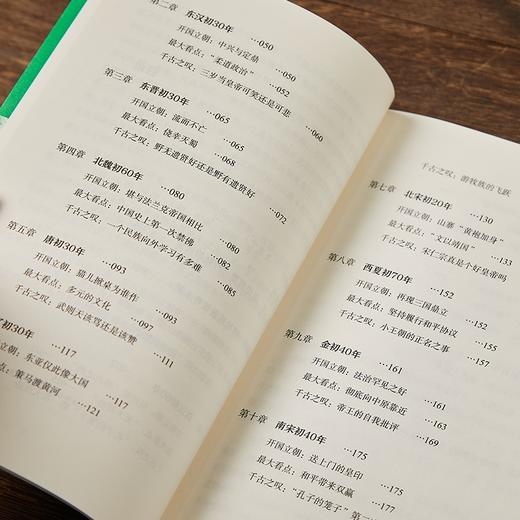 第二章 东汉初30年 …050
开国立朝：中兴与定鼎 …050
最大看点：“柔道政治” …052
千古之叹：三岁当皇帝可笑还是可悲 …060
第三章 东晋初30年 …065
开国立朝：流而不亡 …065
最大看点：侥幸灭蜀 …068
千古之叹：野无遗贤好还是野有遗贤好 …072
第四章 北魏初60年 …080
开国立朝：堪与法兰克帝国相比 …080
最大看点：中国史上第一次禁佛 …082
千古之叹：一个民族向外学习有多难 …085
第五章 唐初30年 …093
开国立朝：猫儿掀桌为谁作 …093
最大看点：多元的文化 …097
千古之叹：武则天该骂还是该赞 …111
初30年 …117
国立朝：东亚仅此像大国 …117
点：策马渡黄河 …121
千古之叹：游牧族的飞跃
第七章 北宋初20年 …130
开国立朝：山寨“黄袍加身” …130
最大看点：“文以靖国” …133
千古之叹：宋仁宗真是个好皇帝吗
第八章 西夏初70年 …152
开国立朝：再现三国鼎立 …152
最大看点：坚持履行和平协议 …155
千古之叹：小王朝的正名之事 …157
第九章 金初40年 …161
开国立朝：法治罕见之好 …161
最大看点：彻底向中原靠近 …163
千古之叹：帝王的自我批评 …169
第十章 南宋初40年 …175
开国立朝：送上门的皇印 …175
最大看点：和平带来双赢 …177
千古之叹：“孔子的笼子”